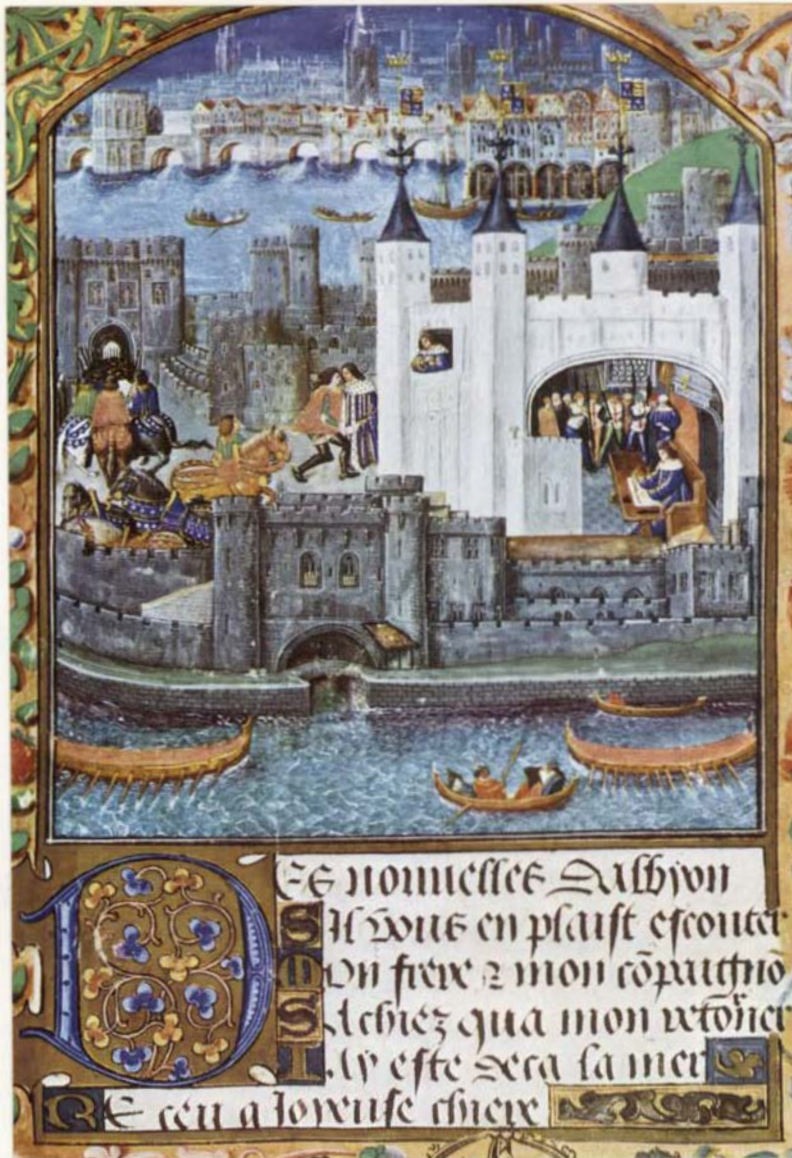 Des nouuelles Dalbyon
Sil vous en plaist escouter
Mon frere ⁊ mon cōpaignō
Sachiez qua mon retōrner
Iay este deca la mer
Receu a Joyeuse chiere